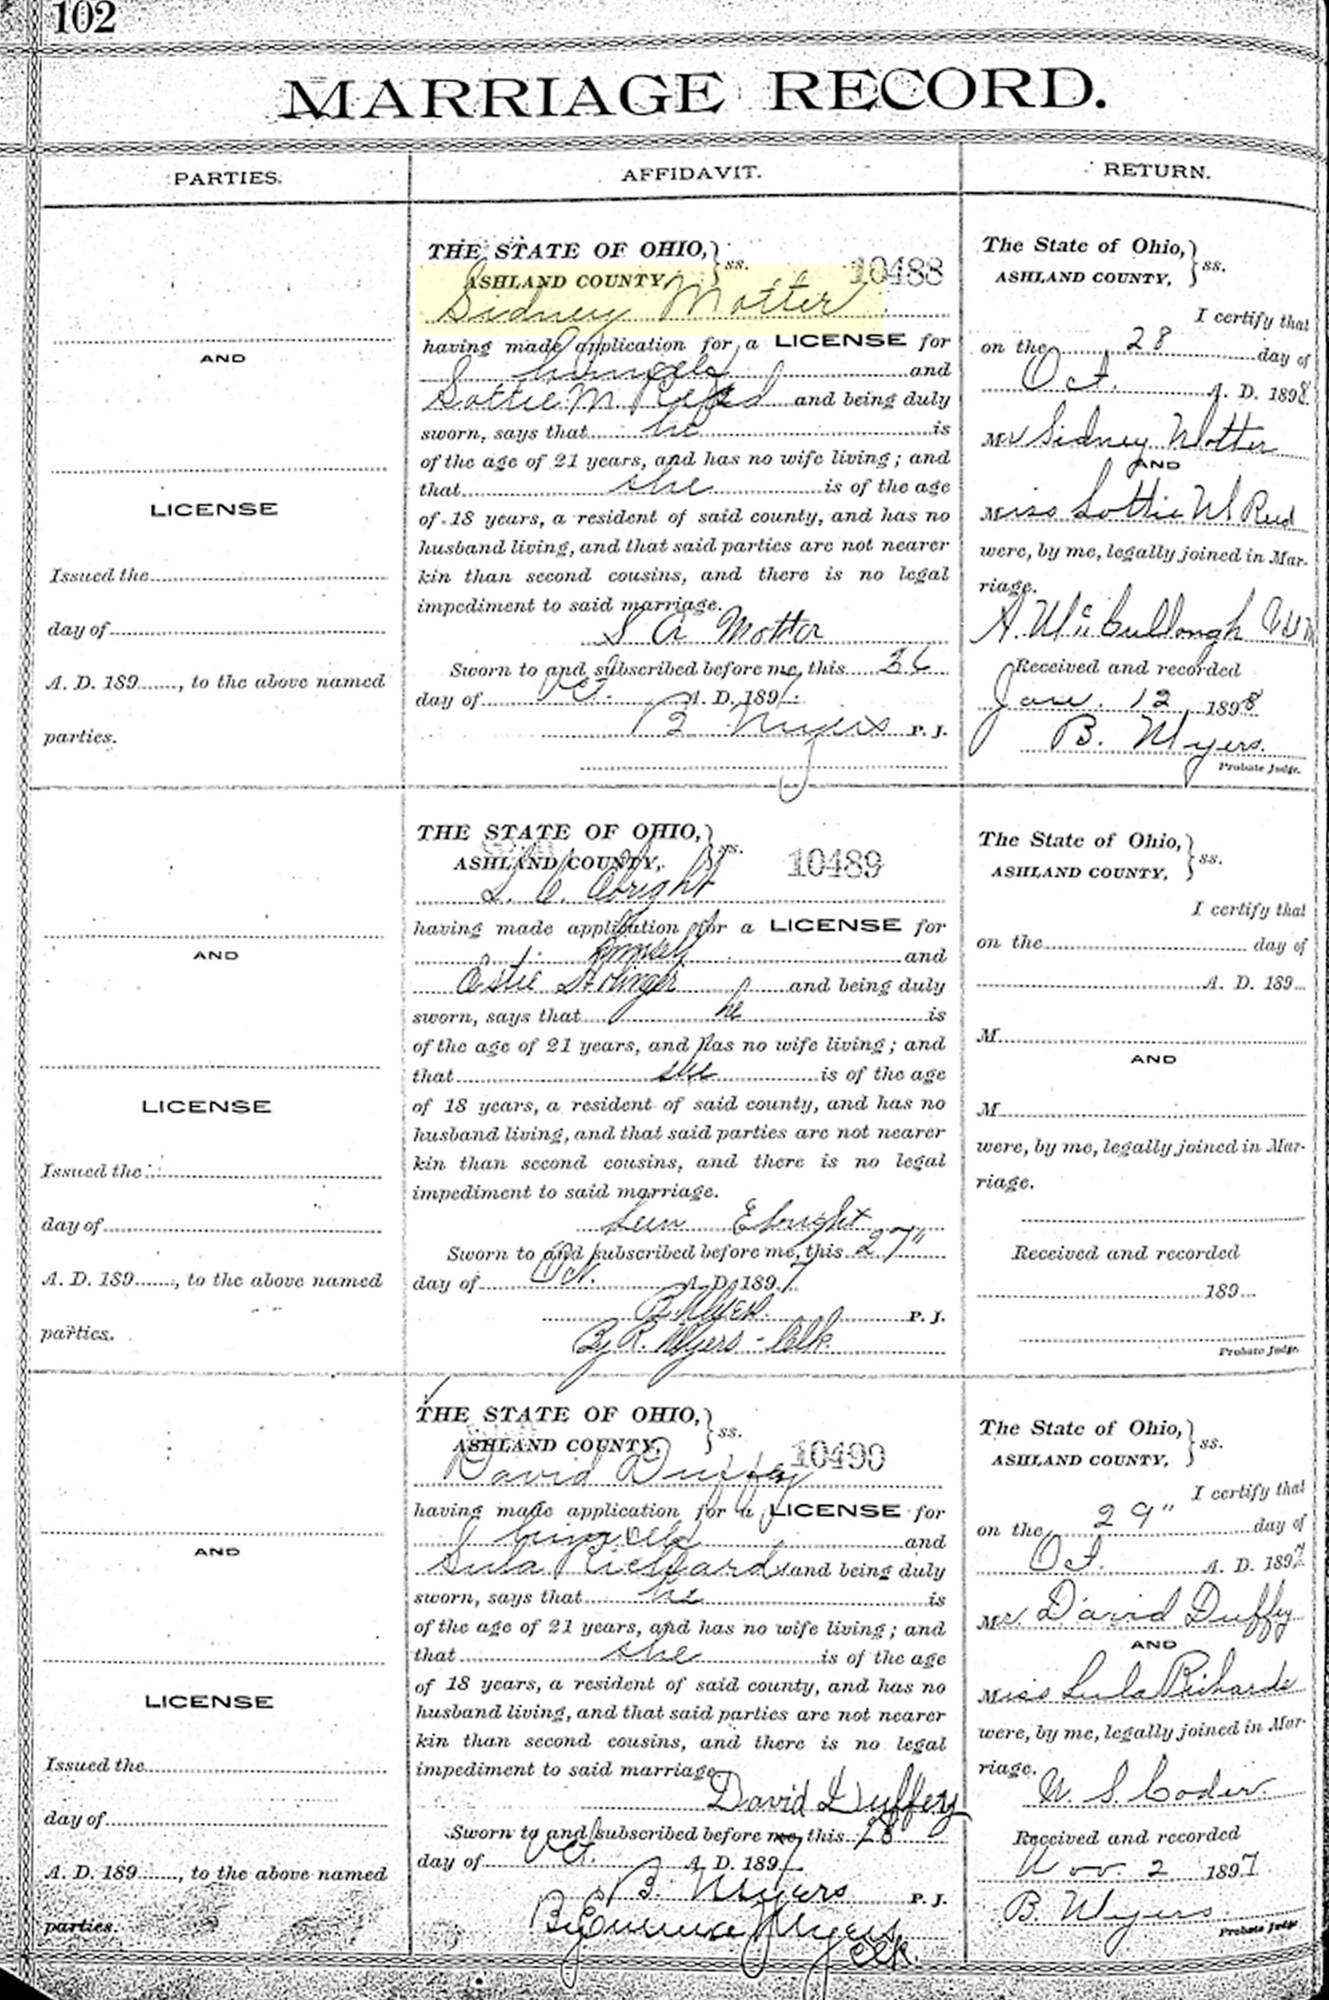 102
MARRIAGE RECORD.
PARTIES.
AND
LICENSE
Issued the
day of
A. D. 189......., to the above named
parties.
AND
LICENSE
Issued the
day of
A. D. 189......., to the above named
parties.
AND
LICENSE
Issued the
day of
A. D. 189......., to the above named
parties.
AFFIDAVIT.
THE STATE OF OHIO,
ASHLAND COUNTY, } ss. 10488
Sidney Motter
having made application for a LICENSE for
himself and
Lottie M Reed and being duly
sworn, says that he is
of the age of 21 years, and has no wife living; and
that she is of the age
of 18 years, a resident of said county, and has no
husband living, and that said parties are not nearer
kin than second cousins, and there is no legal
impediment to said marriage.
S A Motter
Sworn to and subscribed before me, this 26
day of Oct. A. D. 1897.
B Myers P. J.
THE STATE OF OHIO,
ASHLAND COUNTY, } ss. 10489
Ebright
having made application for a LICENSE for
himself and
and being duly
sworn, says that he is
of the age of 21 years, and has no wife living; and
that she is of the age
of 18 years, a resident of said county, and has no
husband living, and that said parties are not nearer
kin than second cousins, and there is no legal
impediment to said marriage.
Ebright
Sworn to and subscribed before me, this 27"
day of Oct. A. D. 1897
B. Myers P. J.
By R. Myers - Clk.
THE STATE OF OHIO,
ASHLAND COUNTY, } ss. 10490
David Duffey
having made application for a LICENSE for
himself and
Lula Richards and being duly
sworn, says that he is
of the age of 21 years, and has no wife living; and
that she is of the age
of 18 years, a resident of said county, and has no
husband living, and that said parties are not nearer
kin than second cousins, and there is no legal
impediment to said marriage.
David Duffey
Sworn to and subscribed before me, this 28
day of Oct. A. D. 1897
B. Myers P. J.
By Myers
Clk.
RETURN.
The State of Ohio,
ASHLAND COUNTY, } ss.
I certify that
on the 28 day of
Oct. A. D. 1898
Mr Sidney Motter
AND
Miss Lottie M Reed
were, by me, legally joined in Mar-
riage.
A. McCullough
Received and recorded
Jan. 12 1898
B. Myers.
Probate Judge.
The State of Ohio,
ASHLAND COUNTY, } ss.
I certify that
on the day of
A. D. 189
M
AND
M
were, by me, legally joined in Mar-
riage.
Received and recorded
189
Probate Judge.
The State of Ohio,
ASHLAND COUNTY, } ss.
I certify that
on the 29" day of
Oct. A. D. 1897
Mr. David Duffy
AND
Miss Lula Richards
were, by me, legally joined in Mar-
riage.
Coder.
Received and recorded
Nov. 2 1897
B. Myers
Probate Judge